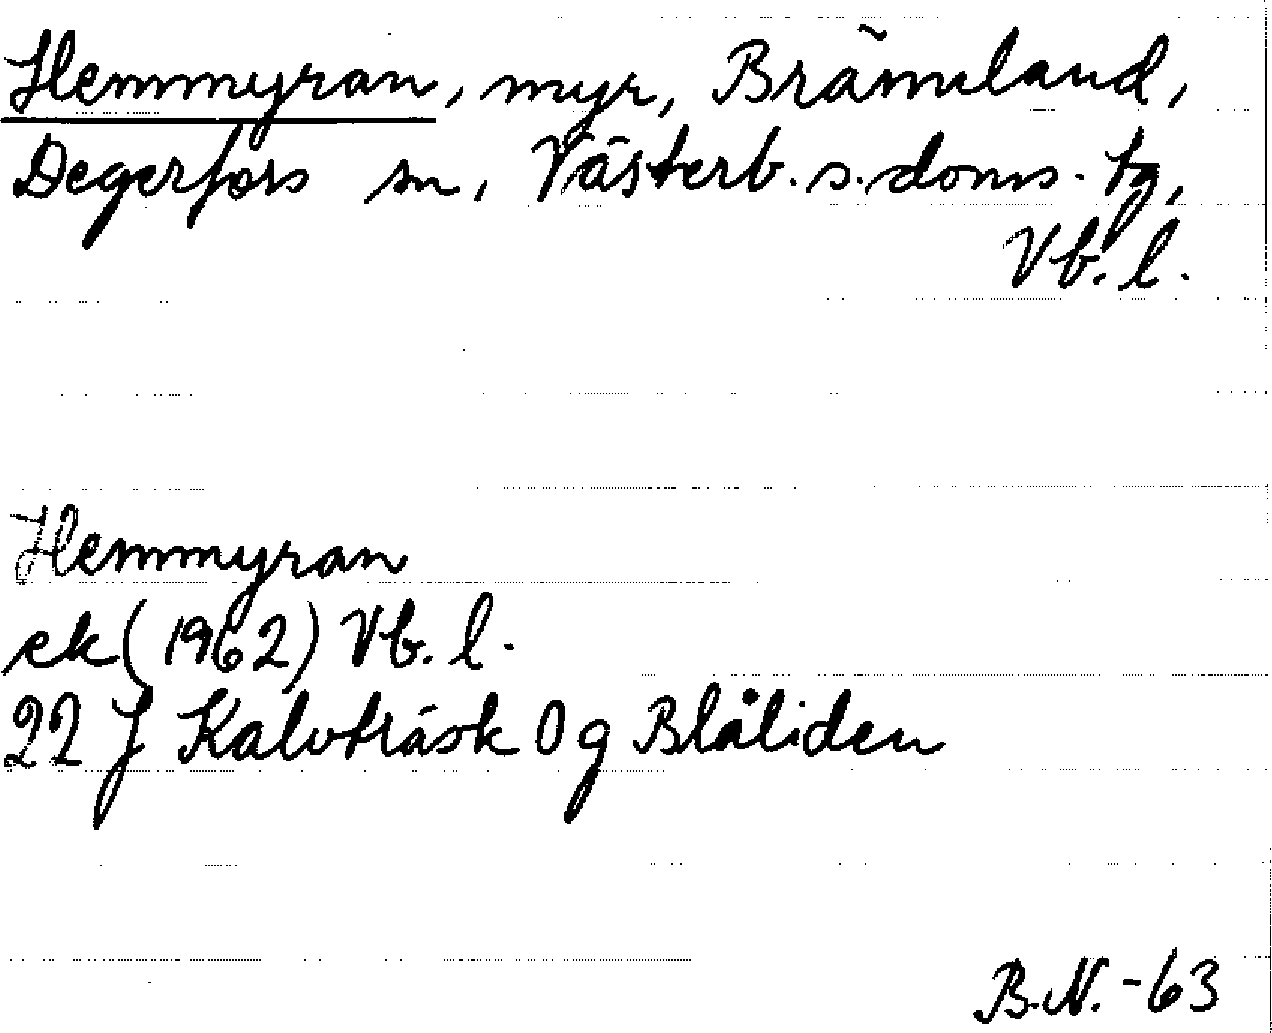 Hemmyran, myr, Brännland,
Degerfors sn, Västerb. s. doms. tg,
Vb. l.
Hemmyran
ek (1962) Vb. l.
22 J Kalvträsk 0 g Blåliden
B.N. -63